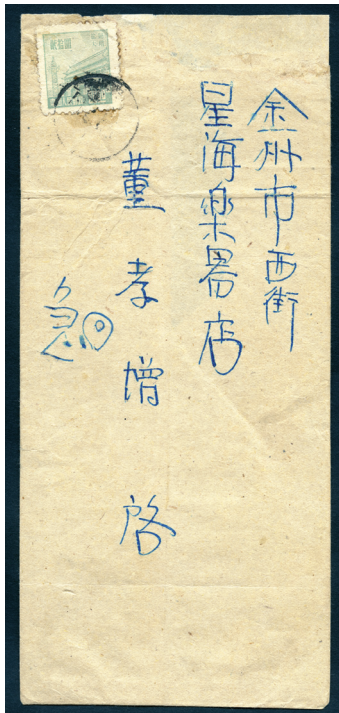 金州市西街
星海樂器店
董孝增啓
急